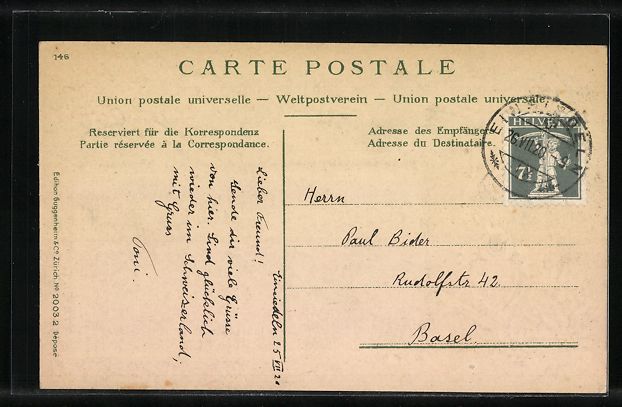 146
CARTE POSTALE
Union postale universelle — Weltpostverein — Union postale universale
Reserviert für die Korrespondenz
Partie réservée à la Correspondance.
Adresse des Empfängers
Adresse du Destinataire.
EINSIEDELN
26.VII.20
HELVETIA
7½
Einsiedeln 25 VII 20
Lieber Freund!
Sende dir viele Grüsse
von hier. Sind glücklich
wieder im Schweizerland,
mit Gruss
Toni.
Herrn
Paul Bider
Rudolfstr 42
Basel.
Edition Guggenheim & Co. Zürich, No 2003 2 Déposé